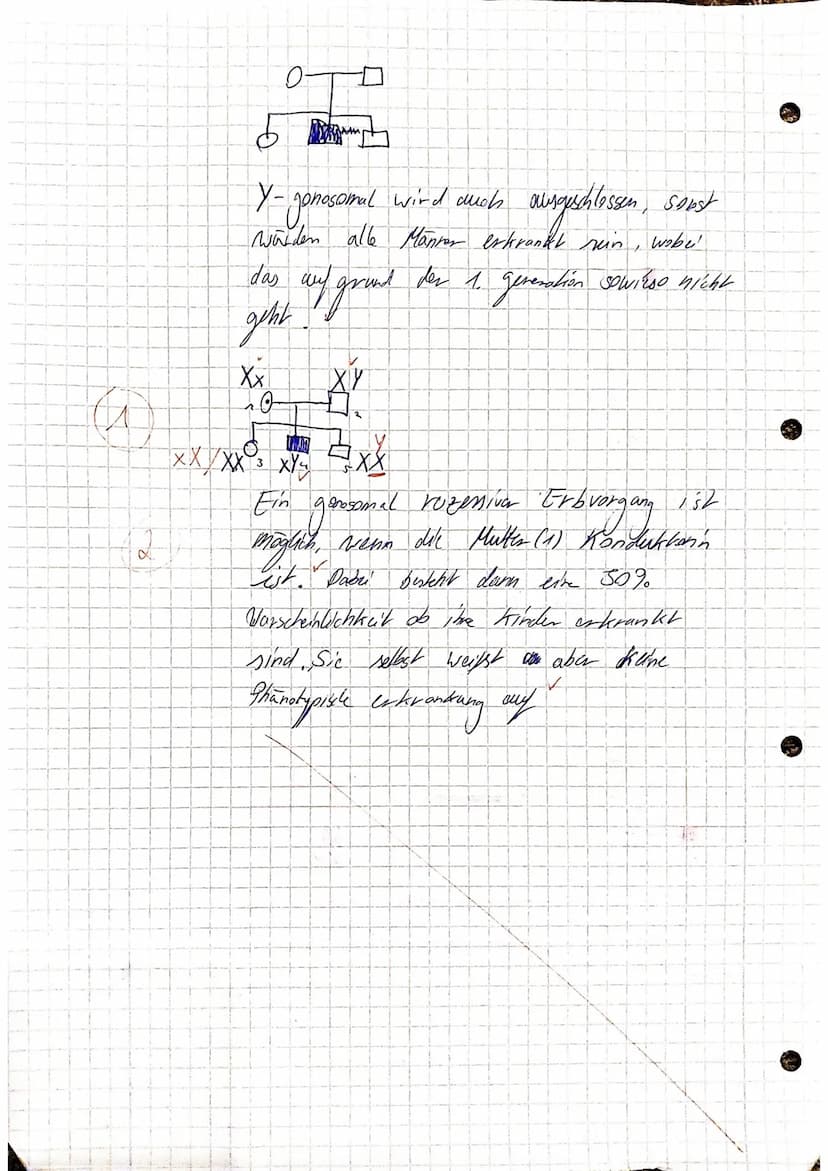 Y-gonosomal wird auch ausgeschlossen, sonst
würden alle Männer erkrankt sein, wobei
das aufgrund der 1. generation sowieso nicht
geht.
Xx XY
1 2
1
xX/XX 3 xY 4 5 XX Y
Ein gonosomal rezessiver Erbvorgang ist
2
möglich, wenn die Mutter (1) Konduktorin
ist. Dabei besteht dann eine 50%
Warscheinlichkeit ob ihre Kinder erkrankt
sind. Sie selbst weißt aber keine
Phänotypische erkrankung auf